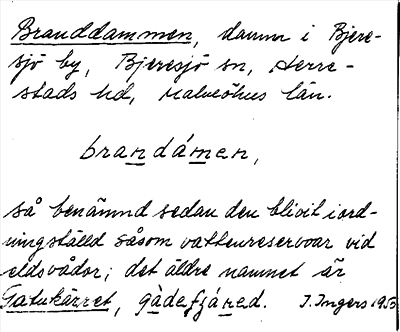 Branddammen, damm i Bjere-
sjö by, Bjeresjö sn, Herre-
stads hd, Malmöhus län.
brandámen,
så benämnd sedan den blivit i ord-
ningställd såsom vattenreservoar vid
eldsvådor; det äldre namnet är
Gatukärret, gàdefjáred. I. Ingers